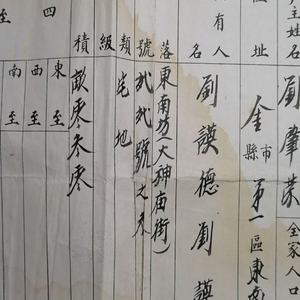 戶主姓名 劉肇榮 全家人口
住址 金 市縣 第一區東南
所有人名 劉謨德 劉謨
座落 東南坊(大神庙街)
號 弍弍號之
類 宅地
級
積 畝零叁零
四至 東至 西至 南至